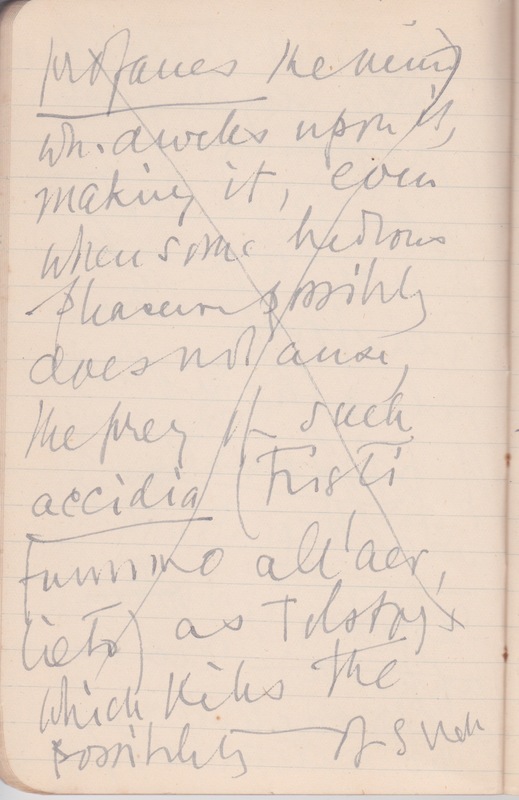 profanes the mind
wh. dwells upon it,
making it, even
when some hideous
pleasure possibly
does not arise,
the prey of such
accidia (Tristi
fummo all'aer,
lieto) as Tolstoy's
which kills the
possibility of such